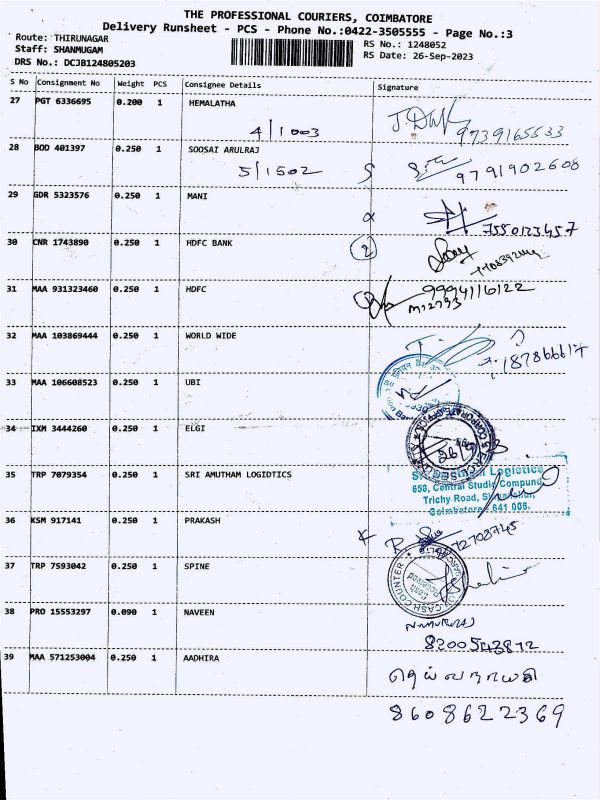 THE PROFESSIONAL COURIERS, COIMBATORE
Delivery Runsheet - PCS - Phone No.:0422-3505555 - Page No.:3
Route: THIRUNAGAR
RS No.: 1248052
Staff: SHANMUGAM
RS Date: 26-Sep-2023
DRS No.: DCJB124805203
S No Consignment No Weight PCS Consignee Details Signature
27 PGT 6336695 0.200 1 HEMALATHA
4/1003 9739165533
28 BOD 401397 0.250 1 SOOSAI ARULRAJ
5/1502 9791902608
29 GDR 5323576 0.250 1 MANI
7550123457
30 CNR 1743890 0.250 1 HDFC BANK
2
31 MAA 931323460 0.250 1 HDFC
9994116122
M12793
32 MAA 103869444 0.250 1 WORLD WIDE
33 MAA 106608523 0.250 1 UBI
34 IXM 3444260 0.250 1 ELGI
35 TRP 7079354 0.250 1 SRI AMUTHAM LOGIDTICS
Logistics
658, Central Studio Compund,
Trichy Road,
Coimbatore - 641 005.
36 KSM 917141 0.250 1 PRAKASH
37 TRP 7593042 0.250 1 SPINE
CASH COUNTER
38 PRO 15553297 0.090 1 NAVEEN
39 MAA 571253004 0.250 1 AADHIRA
8608622369